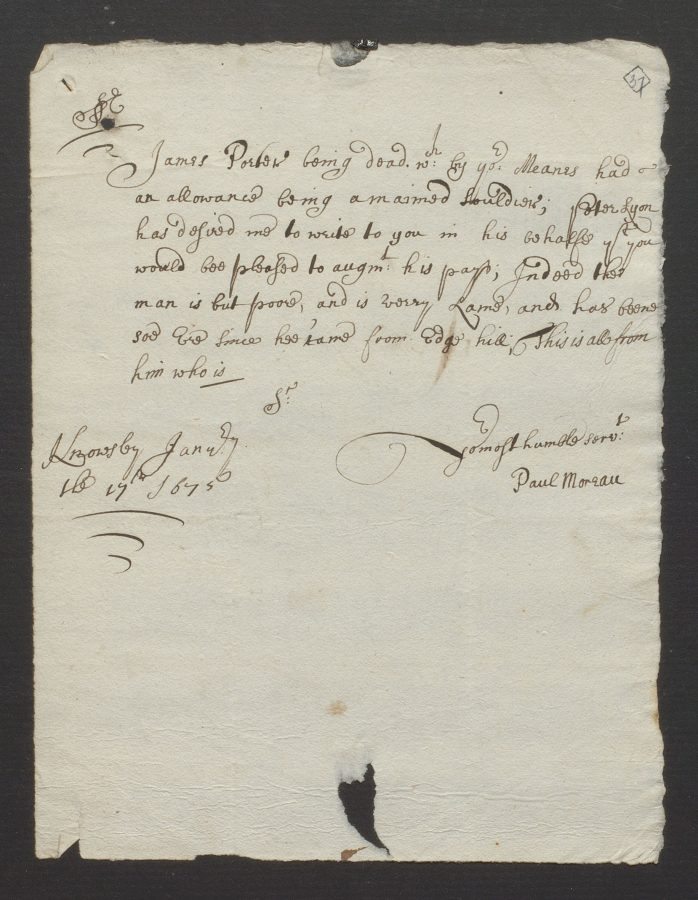 37
Sr
James Porter being dead. wch: by yor: Meanes had
an allowance being a maimed Souldier; Peter Lyon
has desired me to write to you in his behalfe yt you
would bee pleased to augmt: his pay; Indeed the
man is but poore, and is verry Lame, and has beene
soe Ere since hee came from Edge hill; This is all from
him who is
Sr
Knowsley Janry
the 17th 1675
yor most humble servt:
Paul Moreau